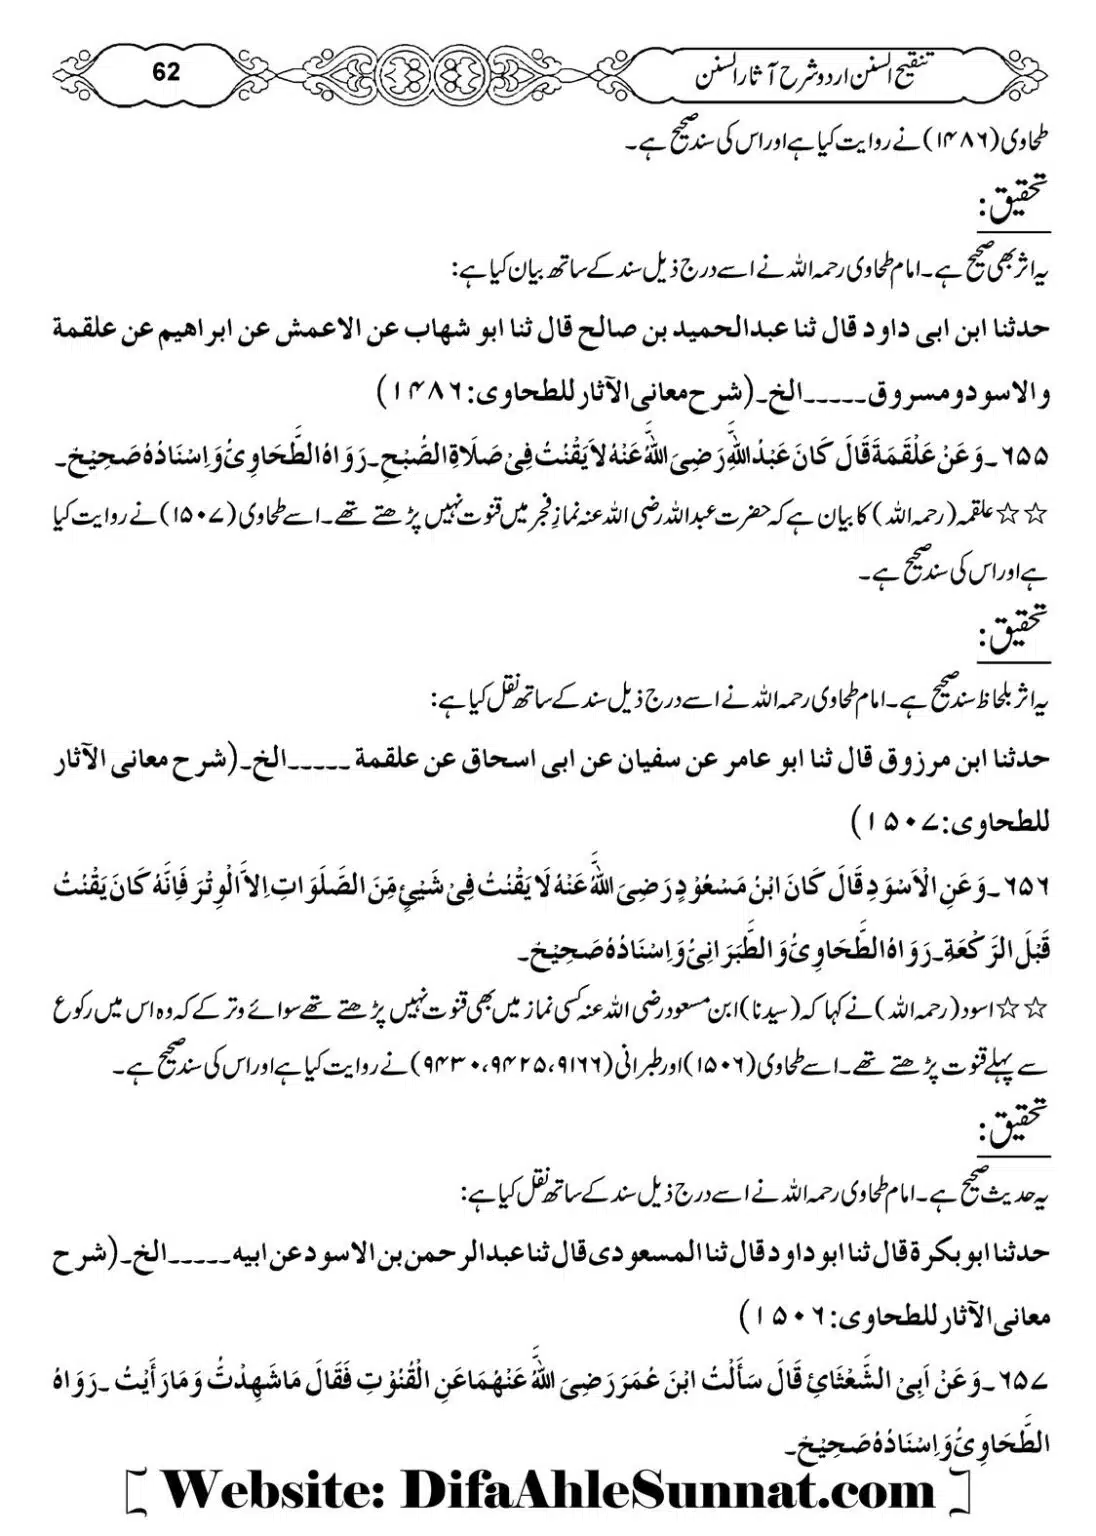 62
تنقیح السنن اردو شرح آثار السنن
طحاوی (۱۴۸۶) نے روایت کیا ہے اور اس کی سند صحیح ہے۔
تحقیق:
یہ اثر بھی صحیح ہے۔ امام طحاوی رحمہ اللہ نے اسے درج ذیل سند کے ساتھ بیان کیا ہے:
حدثنا ابن ابی داود قال ثنا عبدالحمید بن صالح قال ثنا ابو شهاب عن الاعمش عن ابراهیم عن علقمة
والاسود ومسروق۔۔۔۔۔الخ۔(شرح معانی الآثار للطحاوی:۱۴۸۶)
۶۵۵۔وَعَنْ عَلْقَمَةَ قَالَ کَانَ عَبْدُاللّٰهِ رَضِیَ اللّٰهُ عَنْهُ لَا یَقْنُتُ فِیْ صَلَاةِ الصُّبْحِ۔رَوَاهُ الطَّحَاوِیُّ وَاِسْنَادُهُ صَحِیْحٌ۔
☆☆علقمہ (رحمہ اللہ) کا بیان ہے کہ حضرت عبداللہ رضی اللہ عنہ نمازِ فجر میں قنوت نہیں پڑھتے تھے۔اسے طحاوی (۱۵۰۷) نے روایت کیا
ہے اور اس کی سند صحیح ہے۔
تحقیق:
یہ اثر بلحاظ سند صحیح ہے۔ امام طحاوی رحمہ اللہ نے اسے درج ذیل سند کے ساتھ نقل کیا ہے:
حدثنا ابن مرزوق قال ثنا ابو عامر عن سفیان عن ابی اسحاق عن علقمة ۔۔۔۔۔الخ۔(شرح معانی الآثار
للطحاوی:۱۵۰۷)
۶۵۶۔وَعَنِ الْاَسْوَدِ قَالَ کَانَ ابْنُ مَسْعُوْدٍ رَضِیَ اللّٰهُ عَنْهُ لَا یَقْنُتُ فِیْ شَیْئٍ مِّنَ الصَّلَوَاتِ اِلَّا الْوِتْرَ فَاِنَّهٗ کَانَ یَقْنُتُ
قَبْلَ الرَّکْعَةِ۔رَوَاهُ الطَّحَاوِیُّ وَالطَّبَرَانِیُّ وَاِسْنَادُهُ صَحِیْحٌ۔
☆☆اسود (رحمہ اللہ) نے کہا کہ (سیدنا) ابن مسعود رضی اللہ عنہ کسی نماز میں بھی قنوت نہیں پڑھتے تھے سوائے وتر کے کہ وہ اس میں رکوع
سے پہلے قنوت پڑھتے تھے۔اسے طحاوی (۱۵۰۶) اور طبرانی (۹۱۶۶،۹۴۲۵،۹۴۳۰) نے روایت کیا ہے اور اس کی سند صحیح ہے۔
تحقیق:
یہ حدیث صحیح ہے۔امام طحاوی رحمہ اللہ نے اسے درج ذیل سند کے ساتھ نقل کیا ہے:
حدثنا ابو بکرة قال ثنا ابو داود قال ثنا المسعودی قال ثنا عبدالرحمن بن الاسود عن ابیه۔۔۔۔۔الخ۔(شرح
معانی الآثار للطحاوی:۱۵۰۶)
۶۵۷۔وَعَنْ اَبِی الشَّعْثَائِ قَالَ سَأَلْتُ ابْنَ عُمَرَ رَضِیَ اللّٰهُ عَنْهُمَا عَنِ الْقُنُوْتِ فَقَالَ مَا شَهِدْتُّ وَمَا رَأَیْتُ ۔رَوَاهُ
الطَّحَاوِیُّ وَاِسْنَادُهُ صَحِیْحٌ۔
[ Website: DifaAhleSunnat.com ]